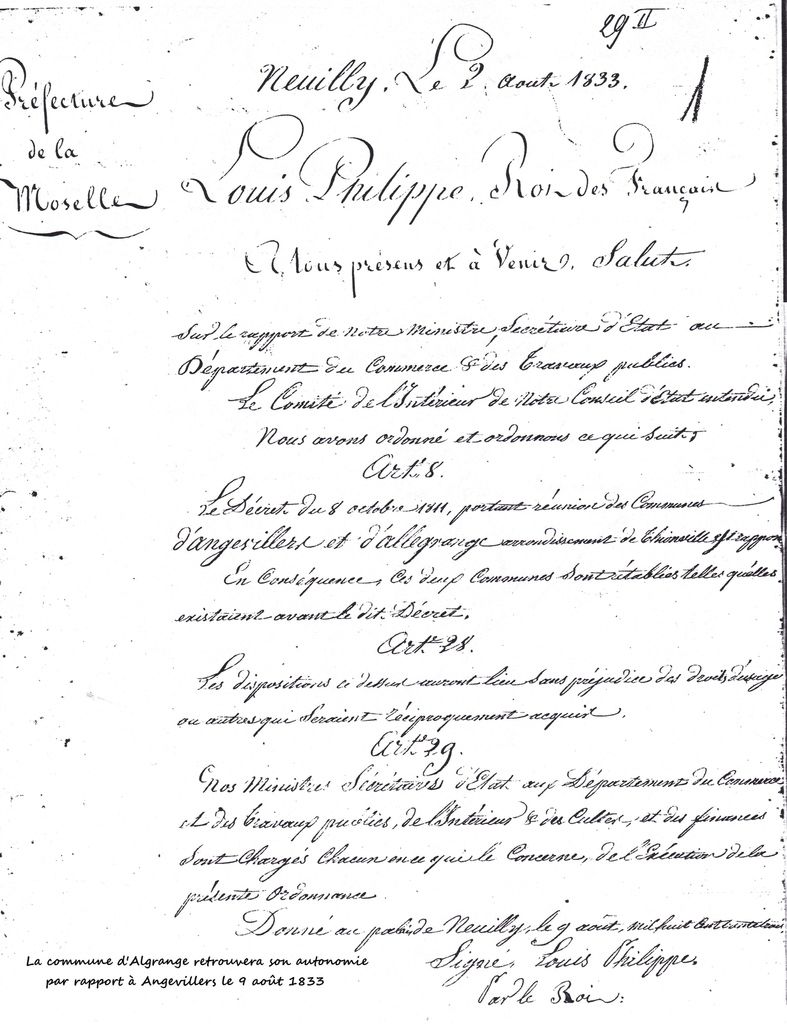 29 II
Neuilly, Le 9 aout 1833.
1
Préfecture
de la
Moselle
Louis Philippe, Roi des Français
A tous présens et à Venir, Salut.
Sur le rapport de notre Ministre, Secrétaire d'Etat au
Département du Commerce & des Travaux publics.
Le Comité de l'Intérieur de Notre Conseil d'Etat entendu,
Nous avons ordonné et ordonnons ce qui suit,
Art. 8.
Le Décret du 8 octobre 1811, portant réunion des Communes
d'angevillers et d'allegrange arrondissement de Thionville est rappor
En Conséquence, Ces deux Communes sont rétablies telles qu'elles
existaient avant le dit Décret.
Art. 28.
Les dispositions ci dessus auront lieu sans préjudice des droits d'usage
ou autres qui seraient réciproquement acquis.
Art. 29.
Nos Ministres Sécrétaires d'Etat aux Département du Commerce
et des Travaux publics, de l'Intérieur & des Cultes, et des finances
sont Chargés Chacun en ce qui le Concerne, de l'Exécution de la
présente Ordonnance
Donné au palais de Neuilly, le 9 août, mil huit cent trente trois
Signé, Louis Philippe.
Par le Roi:
La commune d'Algrange retrouvera son autonomie
par rapport à Angevillers le 9 août 1833